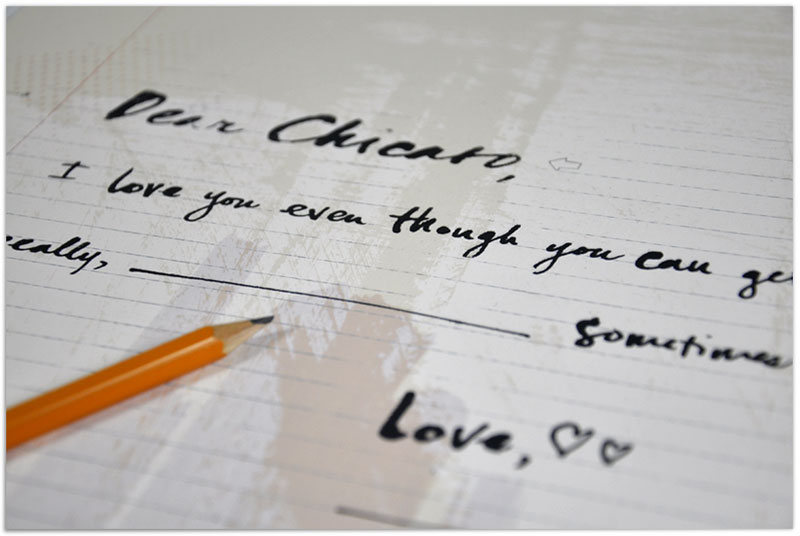 Dear Chicago,
I love you even though you can ge
eally, sometimes
Love,